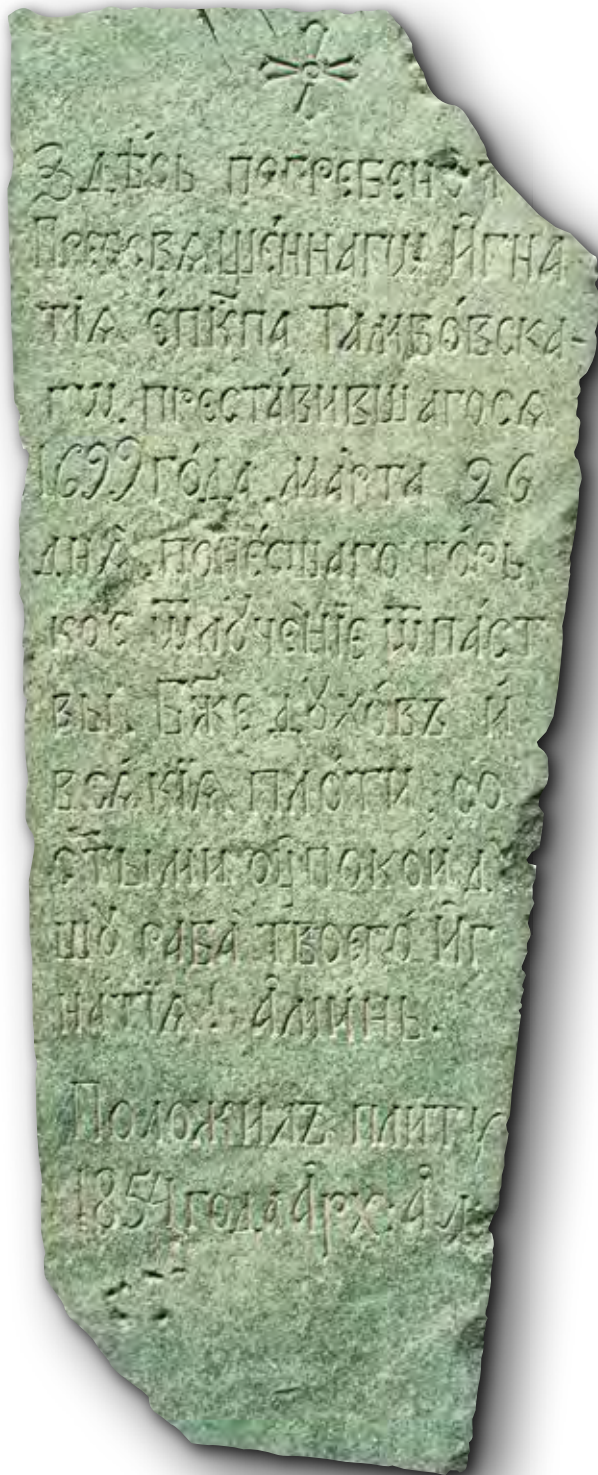 Здѣ́сь погребено
Преѡсвѧще́ннагѡ И҆гна
тїѧ є҆пⷭ҇кпа Тамбо́вска-
гѡ. преста́вившагосѧ
1699 го́да ма́рта 26
днѧ̀ поне́сшаго го́рь
кое ѿлꙋче́нїе ѿ па́ст
вы. Бж҃е дꙋхо́въ и҆
всѧ́кїѧ пло́ти: со
ст҃ыми ᲂу҆поко́й дꙋ
шꙋ̀ раба̀ твоегѡ̀ И҆г
на́тїѧ! а҆ми́нь.
Положилъ плитꙋ
1854 года а҆рх: а҆л